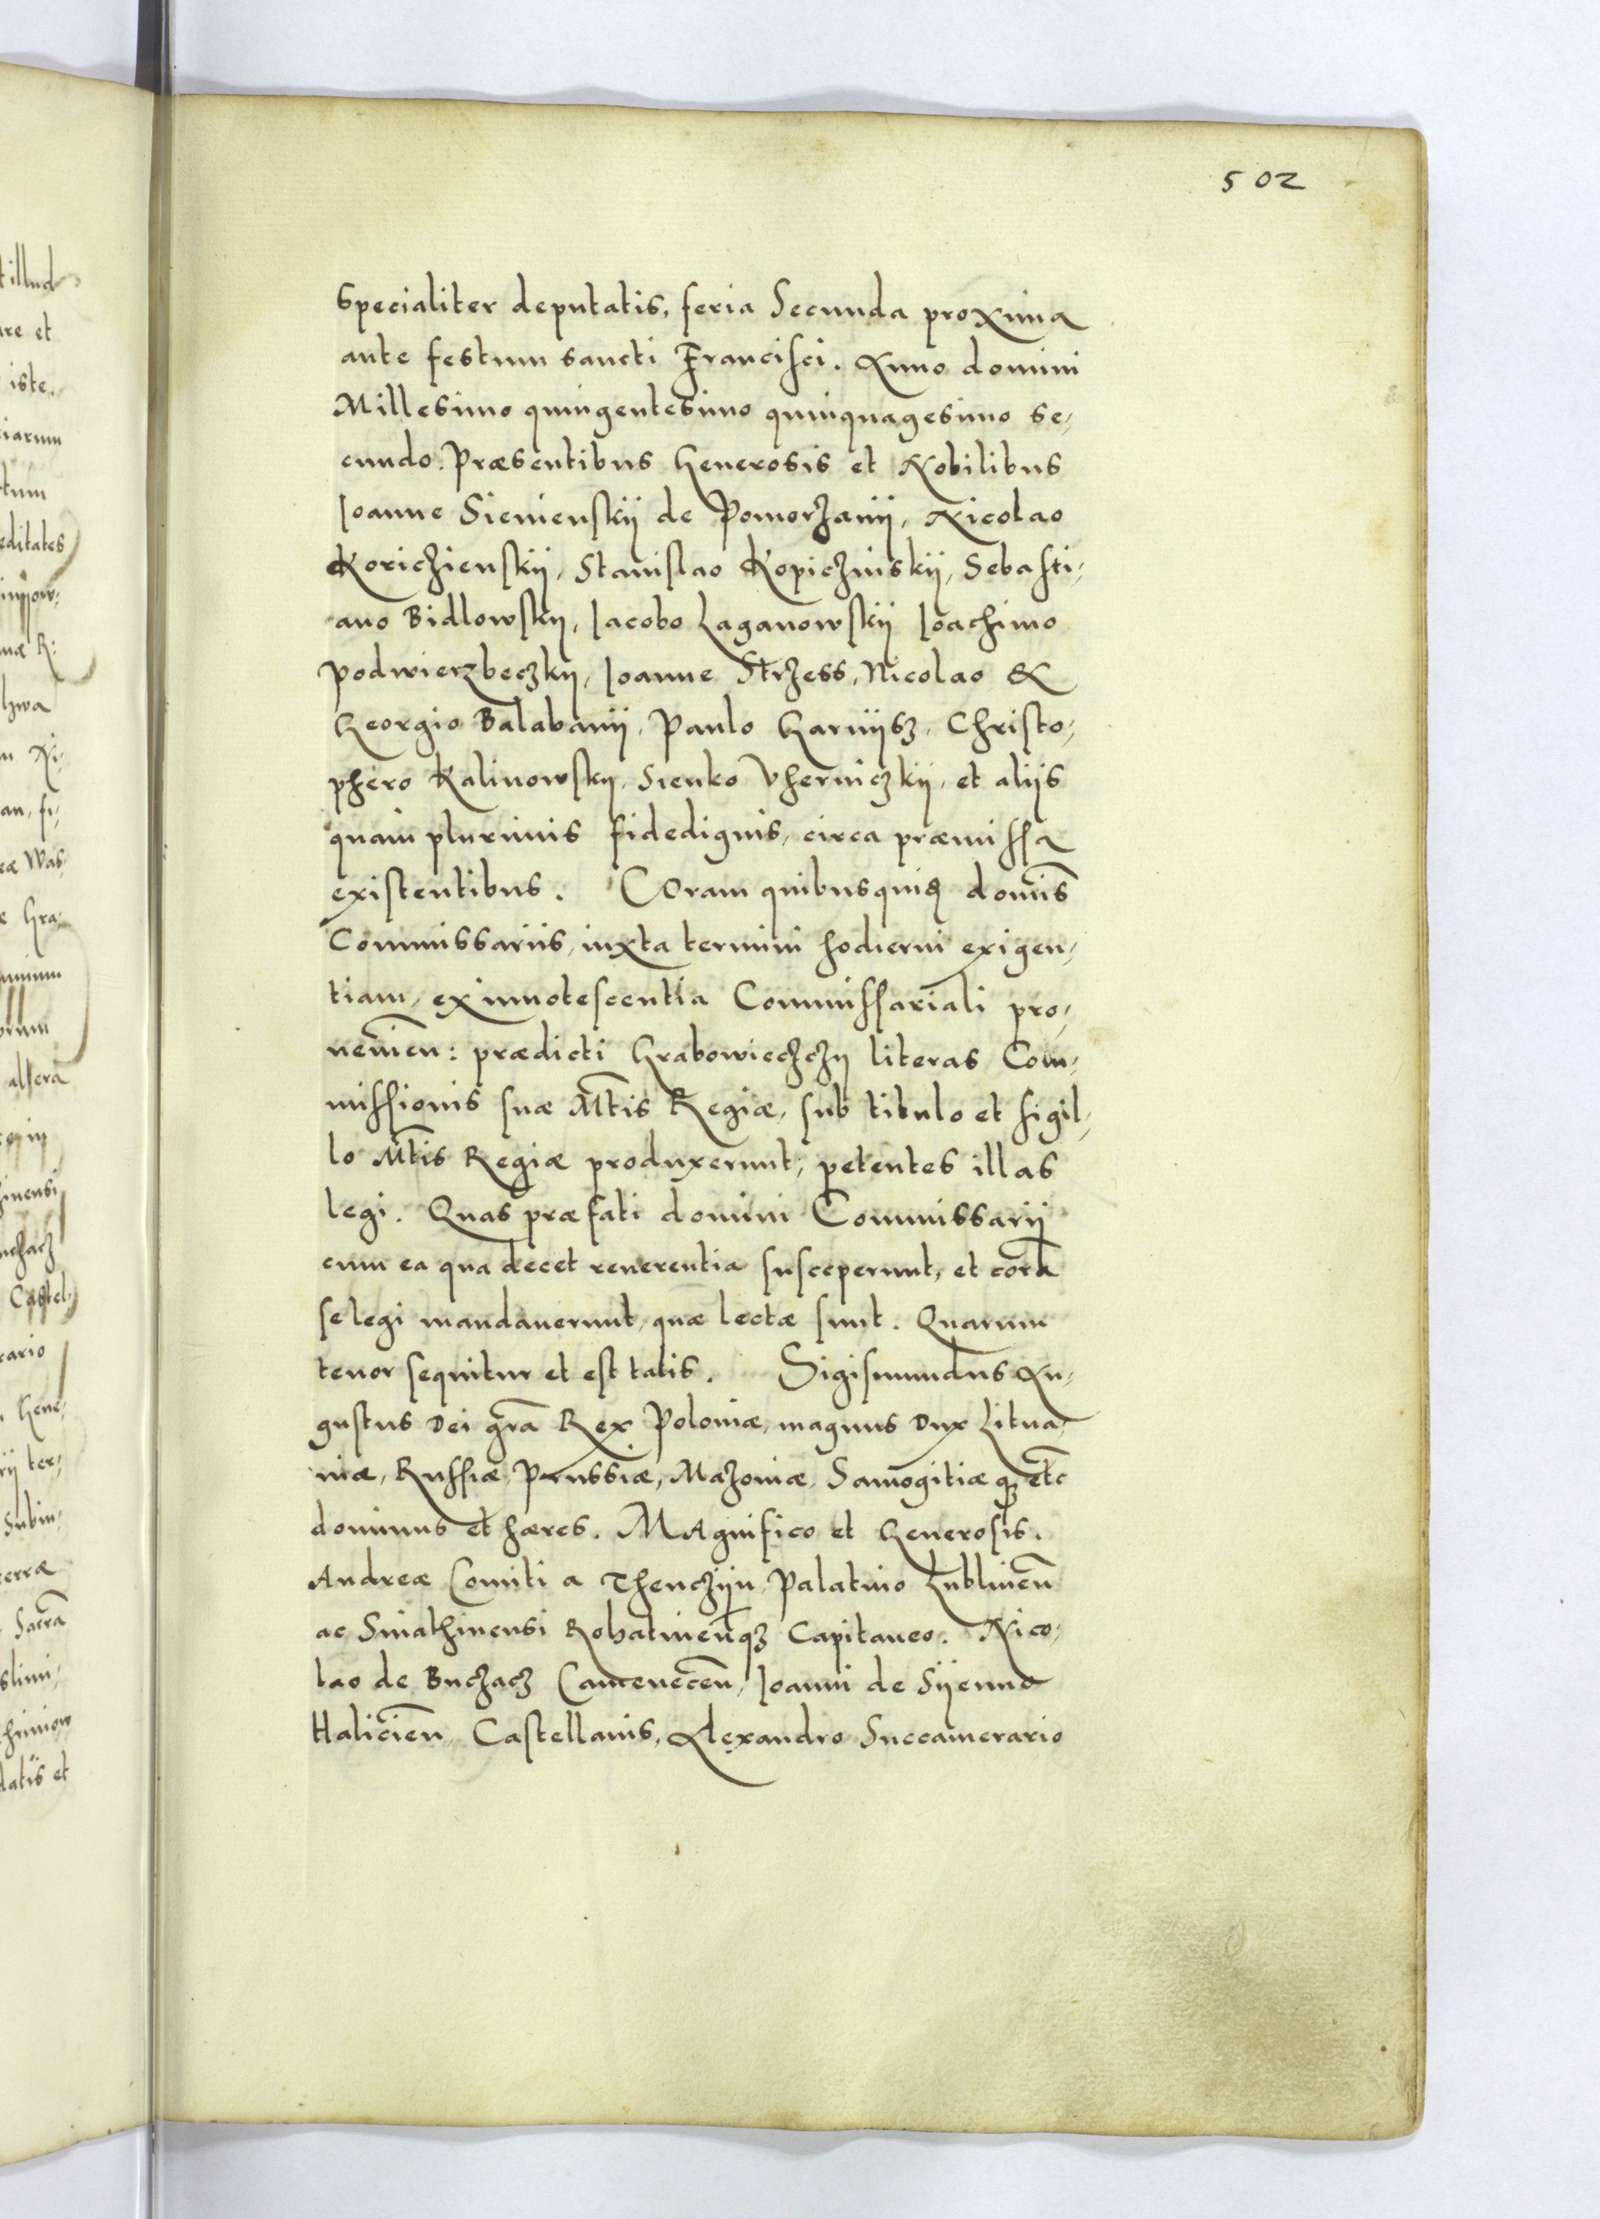 502
specialiter deputatis, feria Secunda proxima
ante festum sancti Francisci. Anno domini
Millesimo quingentesimo quinquagesimo se-
cundo. Præsentibus Generosis et Nobilibus
Ioanne Sienienskÿ de Pomorzanÿ, Nicolao
Koriczienskÿ, Stanislao Kopiczinskÿ, Sebasti-
ano Bidlowskÿ, Iacobo Laganowskÿ Ioachimo
Podwierzbeczkÿ, Ioanne Strzess, Nicolao &
Georgio Balabanÿ, Paulo Garnÿsz, Christo-
phero Kalinowskÿ, Sienko Vherniczkÿ, et aliis
quam plurimis fidedignis, circa præmissa
existentibus. COram quibusquid domīs
Commissariis, iuxta termini hodierni exigen-
tiam, ex innotescentia Commissariali pro-
venīen: prædicti Grabowieczczÿ literas Com-
missionis suæ Mt̄is Regiæ, sub titulo et sigil-
lo Mt̄is Regiæ produxerunt, petentes illas
legi. Quas præfati domini Commissarÿ
cum ea qua decet reverentia susceperunt, et corā
se legi mandaverunt, quæ lectæ sunt. Quarum
tenor sequitur et est talis. Sigismundus Au-
gustus Dei gr̄a Rex Poloniæ, magnus Dux Litua-
niæ, Russiæ, Prussiæ, Mazoviæ, Samogitiæ qȝ et̄c
dominus et hæres. MAgnifico et Generosis.
Andreæ Comiti a Thenczÿn Palatino Lublinen̄
ac Sniathinensi Rohatinen̄qȝ Capitaneo. Nico-
lao de Buczacz Camenecen̄, Ioanni de Sÿenno
Halicien̄, Castellanis, Alexandro Succamerario